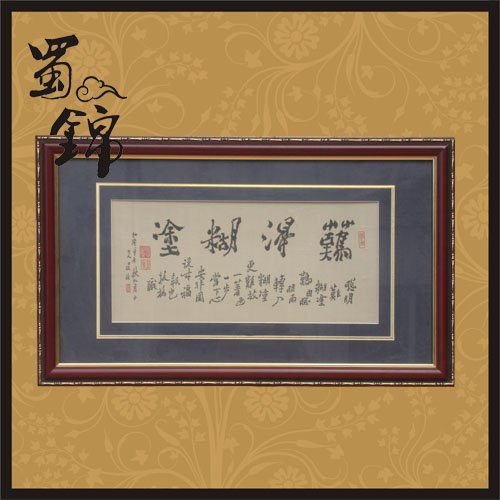 蜀錦
難得糊塗
聰明
難
糊塗
難由聰
明而
轉入
糊塗
更難放
一著退
一步
當下心
安非圖
後來福
報也
板橋
識